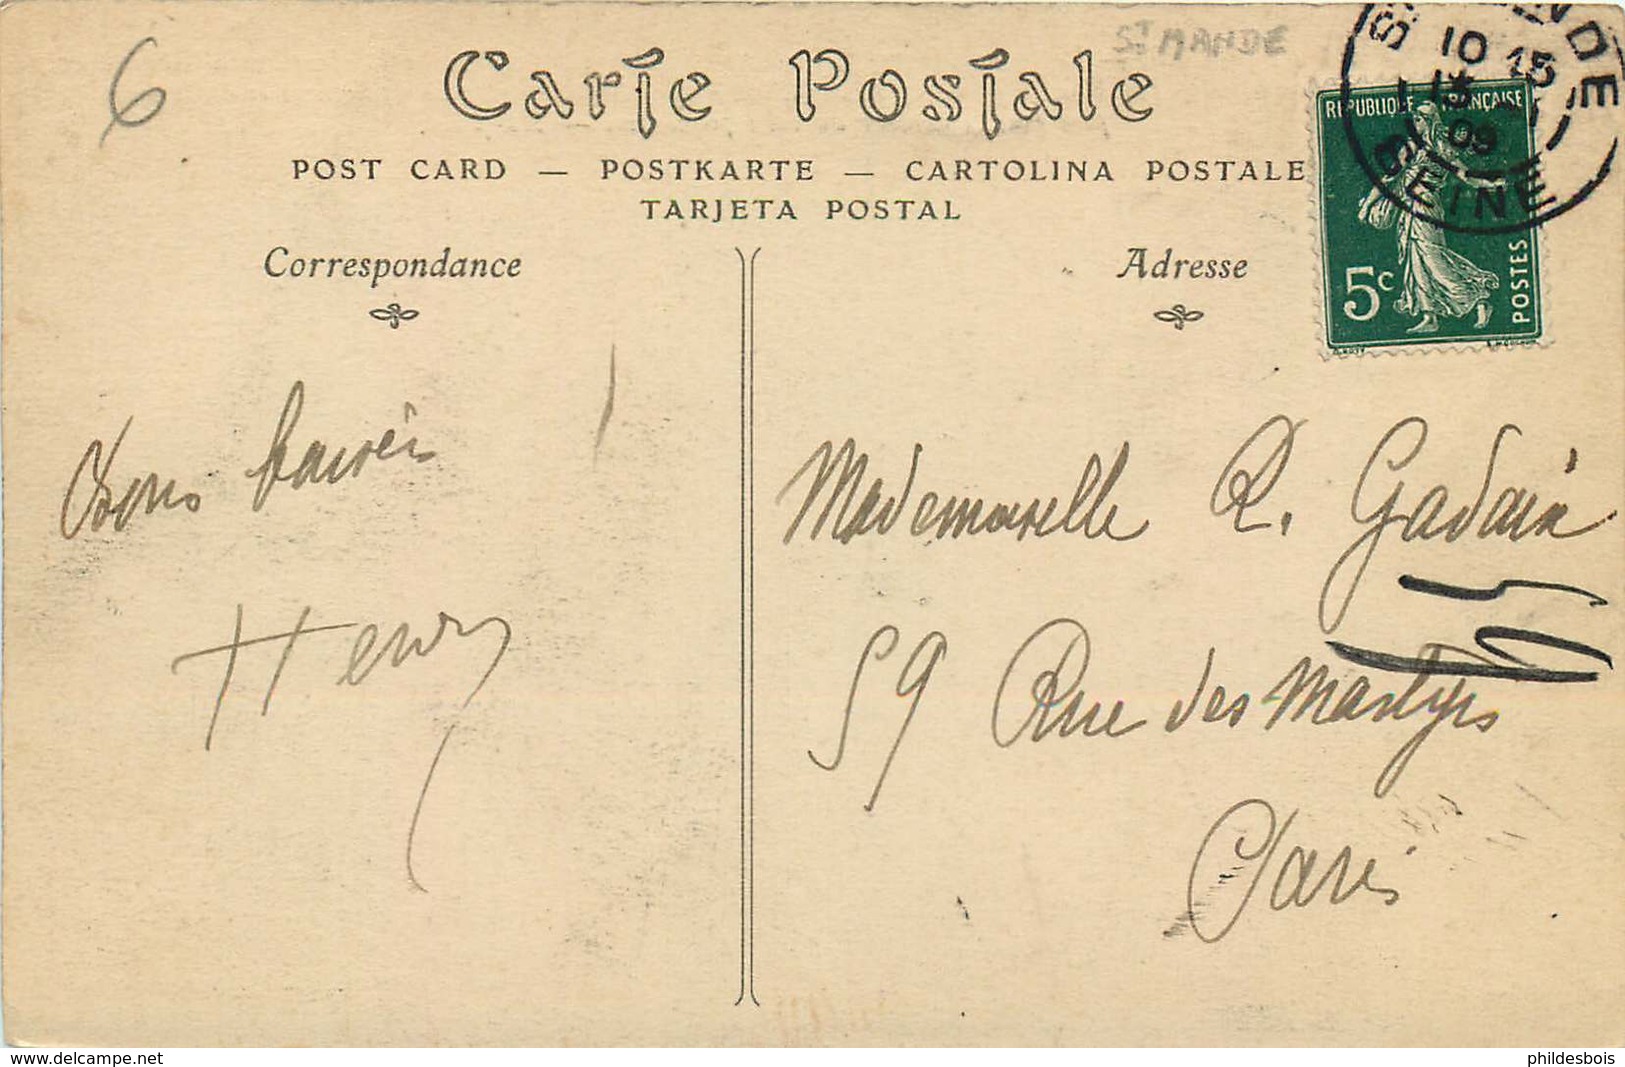 6
St MANDE
Carte Postale
POST CARD — POSTKARTE — CARTOLINA POSTALE
TARJETA POSTAL
Correspondance
Adresse
REPUBLIQUE FRANÇAISE
5c
POSTES
10 15
09
SEINE
Bons baisers
Henry
Mademoiselle R. Gadain
59 Rue des Martyrs
Paris
www.delcampe.net
phildesbois